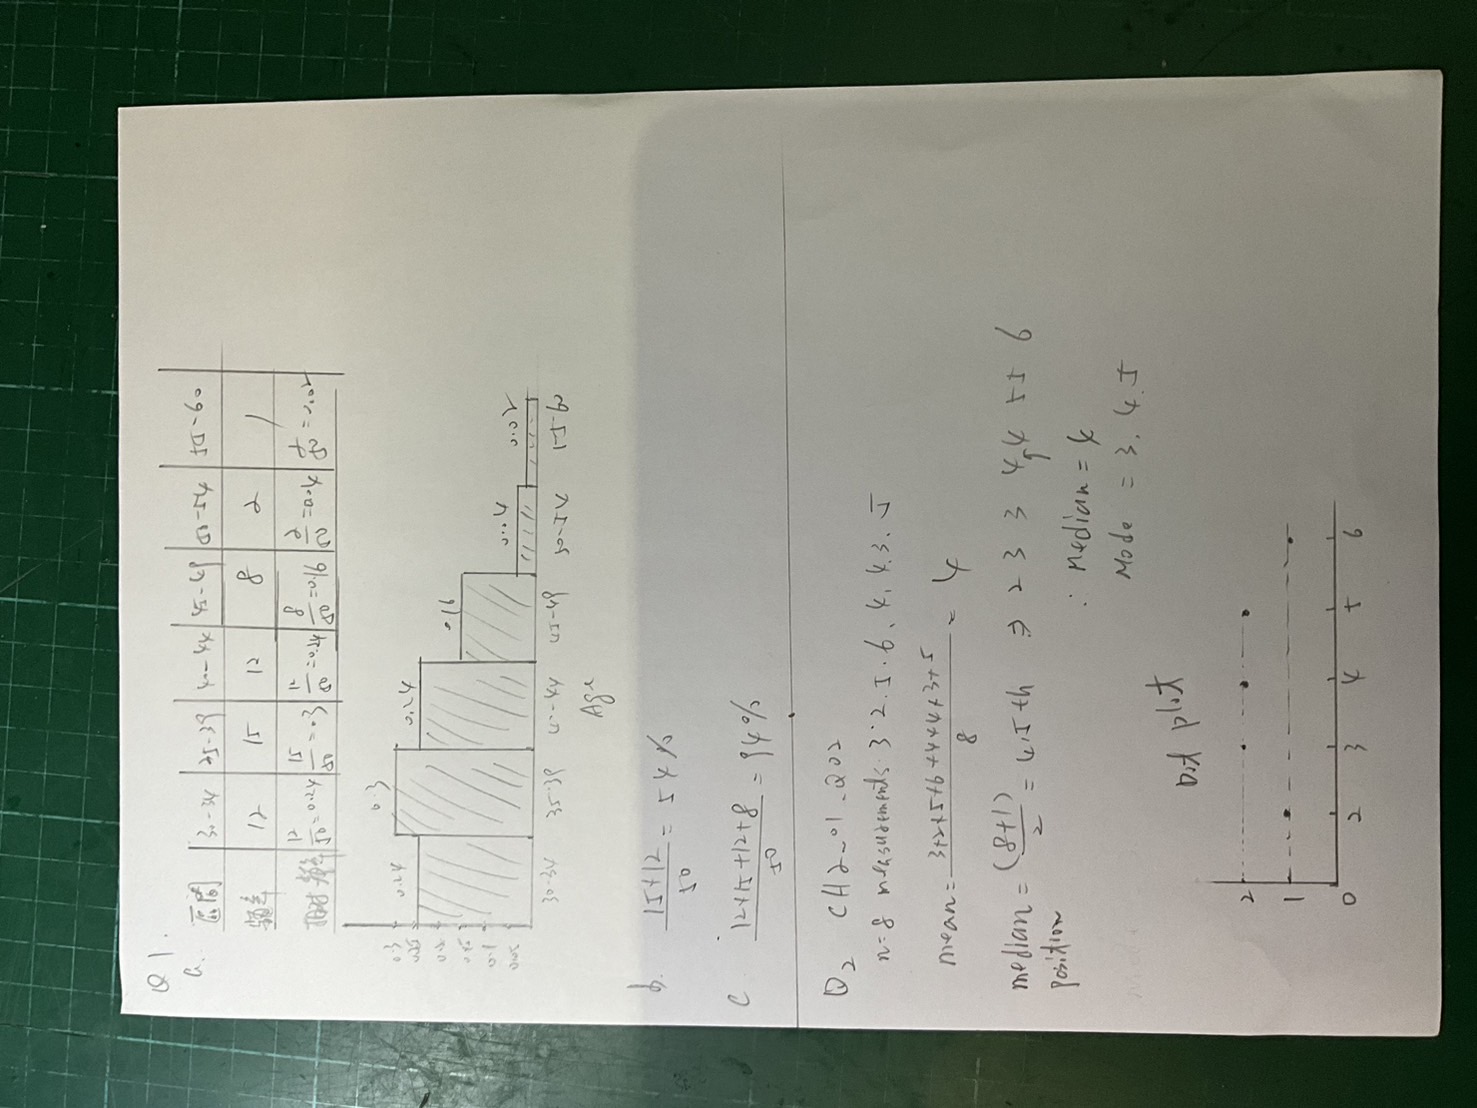 Q1.
a. 區間 30-34 35-39 40-44 45-49 50-54 55-60
頻率 12 15 12 8 2 1
相對頻率 12/50=0.24 15/50=0.3 12/50=0.24 8/50=0.16 2/50=0.04 1/50=0.02
0.3
0.24
0.24
0.16
0.04
0.02
0.3
0.25
0.2
0.15
0.1
0.05
30-34 35-39 40-44 45-49 50-54
Age
b. 15+12/50 = 54%
c 12+15+12+8/50 = 94%
Q2 CH2-01-Q02
n=8 measurements. 3.2.5.6.4.4.3.5
mean= 3+2+5+6+4+4+3+5/8 = 4
median = (8+1)/2 = 4.5th ⇒ 2 3 3 4 4 5 5 6
position
∴ Median = 4
Mode = 3.4.5
Dot plot
2
1
0 2 3 4 5 6